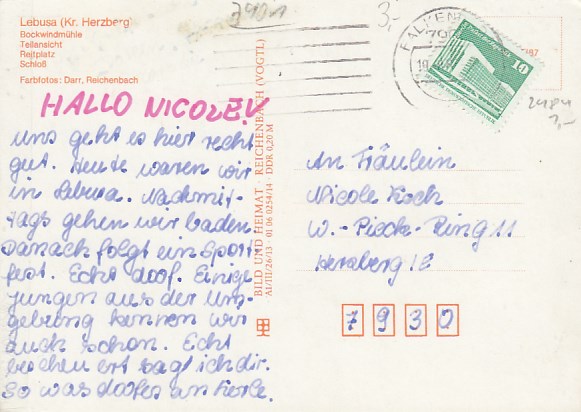 Lebusa (Kr. Herzberg)
Bockwindmühle
Teilansicht
Reitplatz
Schloß
Farbfotos: Darr, Reichenbach
7901
3,-
HALLO NICOLE!
Uns geht es hier recht
gut. Heute waren wir
in Lebusa. Nachmit-
tags gehen wir baden.
Danach folgt ein Sport-
fest. Echt doof. Einige
Jungen aus der Um-
gebung kennen wir
auch schon. Echt
brechen ert sag ich dir.
So was doofes an Kerle.
BILD UND HEIMAT REICHENBACH (VOGTL)
A1/III/26/13 01 06 0254/14 DDR 0,20 M
FALKEN
790
10
2484
1,-
An Fräulein
Nicole Koch
W.-Pieck-Ring 11
Herzberg 12
7930